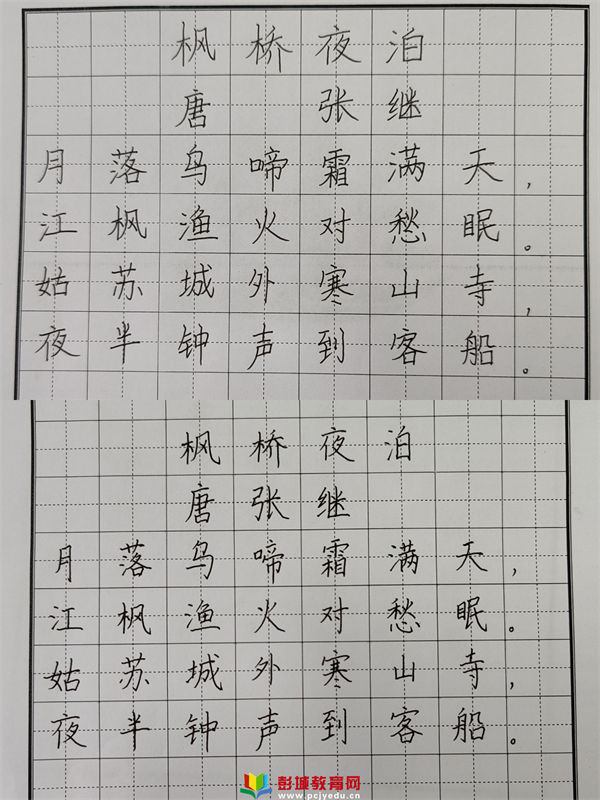 枫桥夜泊
唐 张继
月落乌啼霜满天，
江枫渔火对愁眠。
姑苏城外寒山寺，
夜半钟声到客船。
枫桥夜泊
唐张继
月落乌啼霜满天，
江枫渔火对愁眠。
姑苏城外寒山寺，
夜半钟声到客船。
彭城教育网
www.pcjyedu.cn